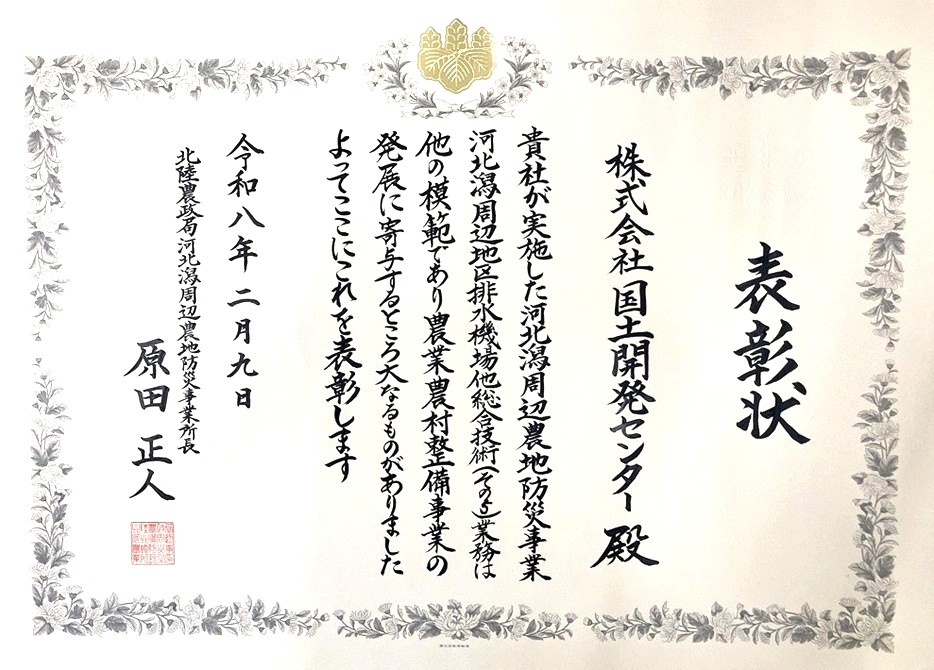 表彰状
株式会社国土開発センター 殿
貴社が実施した河北潟周辺農地防災事業
河北潟周辺地区排水機場他総合技術(その5)業務は
他の模範であり農業・農村整備事業の
発展に寄与するところ大なるものがありました
よってここにこれを表彰します
令和八年二月九日
北陸農政局河北潟周辺農地防災事業所長
原田正人